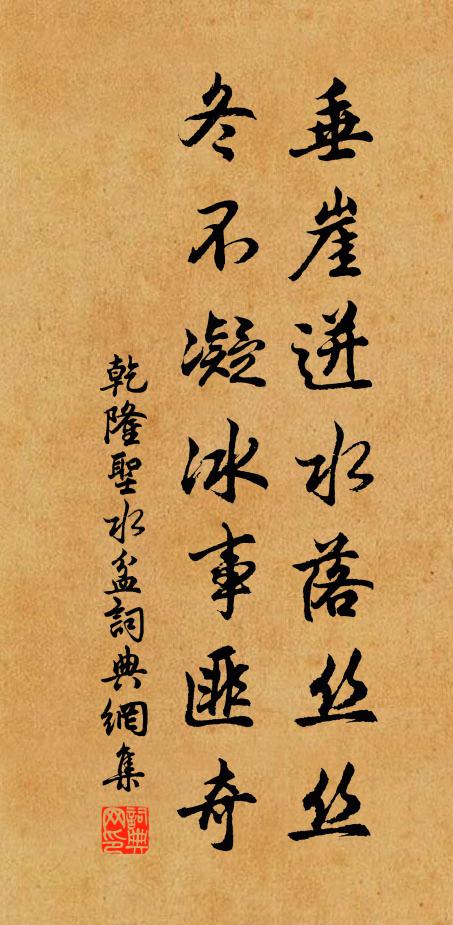 垂崖迸水落丝丝
冬不凝冰事匪奇
乾隆聖水盆詞典網集
詞典
网印